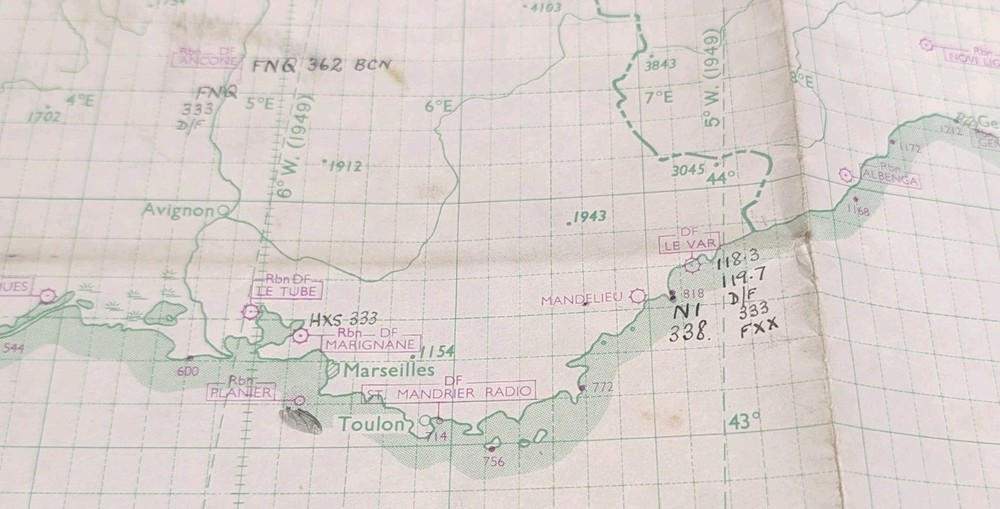 4103
Rbn DF
ANCONE
FNQ 362 BCN
FNQ
333
D/F
1702
4°E
5°E
6° W. (1949)
6°E
3843
7°E
5° W. (1949)
8°E
Rbn
1912
3045
44°
1172
1212
Rbn
ALBENGA
1168
Avignon
1943
DF
LE VAR
118.3
119.7
D/F
333
FXX
UES
Rbn DF
LE TUBE
HXS 333
Rbn DF
MARIGNANE
MANDELIEU
818
N1
338.
544
600
1154
Marseilles
Rbn
PLANIER
DF
ST. MANDRIER RADIO
772
Toulon
714
756
43°